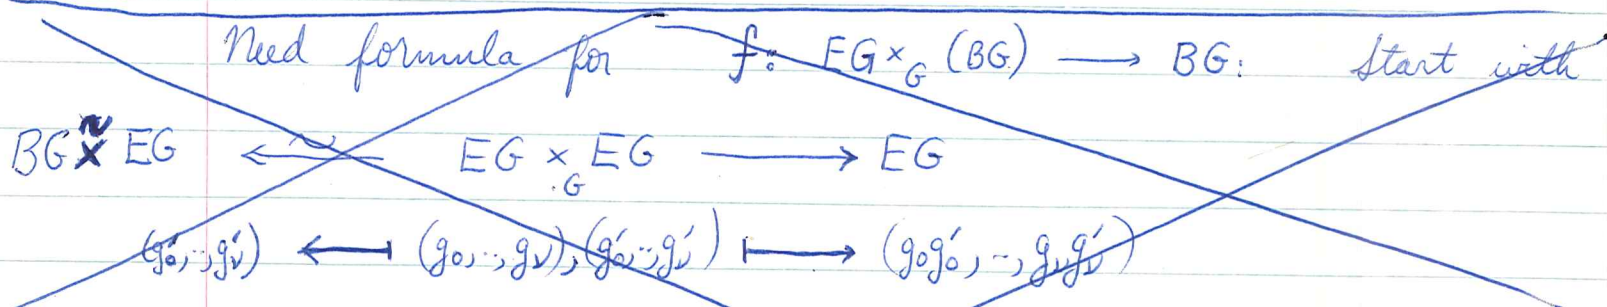 Need formula for f: EG ×_G (BG) ⟶ BG: Start with
BG ×̃ EG ⟵ EG ×_G EG ⟶ EG
(g₀′,..,g_ν′) ⟻ (g₀,..,g_ν),(g₀′,..,g_ν′) ⟼ (g₀g₀′,..,g_νg_ν′)